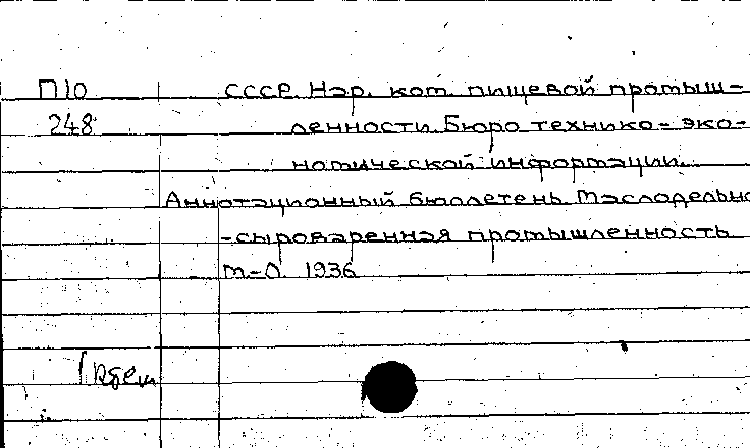 П10 СССР. Нар. ком. пищевой промыш-
248 ленности. Бюро технико-эко-
номической информации.
Аннотационный бюллетень. Маслодельно
-сыроваренная промышленность
М-Л. 1936